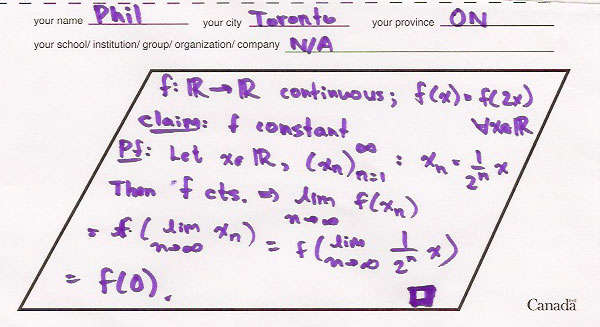 your name Phil your city Toronto your province ON
your school/ institution/ group/ organization/ company N/A
f: ℝ → ℝ continuous; f(x) = f(2x)
claim: f constant ∀x∈ℝ
Pf: Let x∈ℝ, (xₙ)ₙ₌₁^∞ : xₙ = 1/2ⁿ x
Then f cts. ⇒ lim n→∞ f(xₙ)
= f( lim n→∞ xₙ) = f( lim n→∞ 1/2ⁿ x)
= f(0). □
Canada